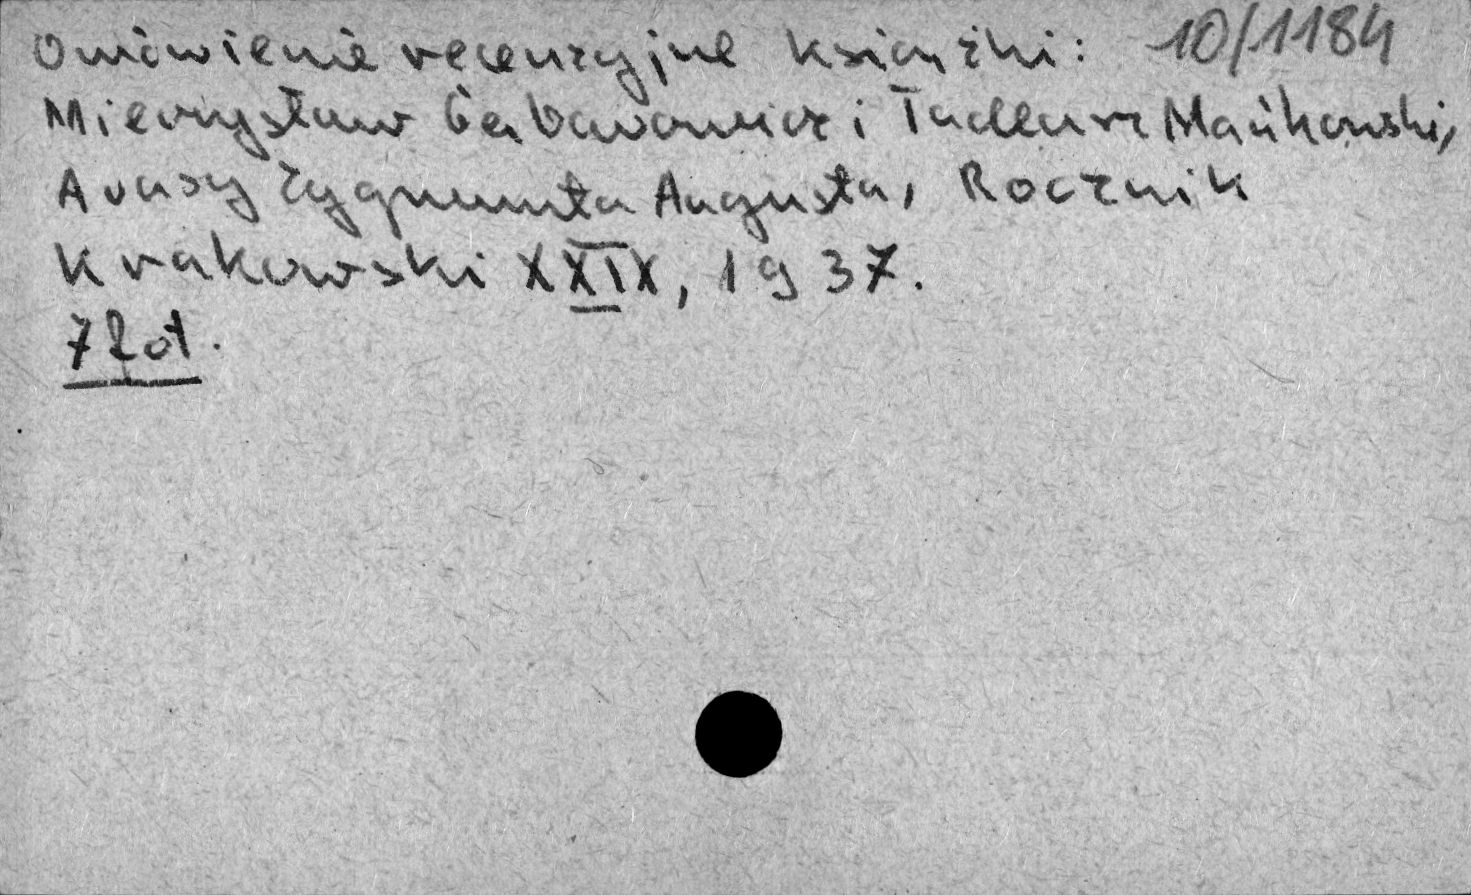 Omówienie recenzyjne książki: 10/1184
Mieczysław Gębarowicz i Tadeusz Mańkowski,
Arasy Zygmunta Augusta, Rocznik
Krakowski XXIX, 1937.
7 fot.